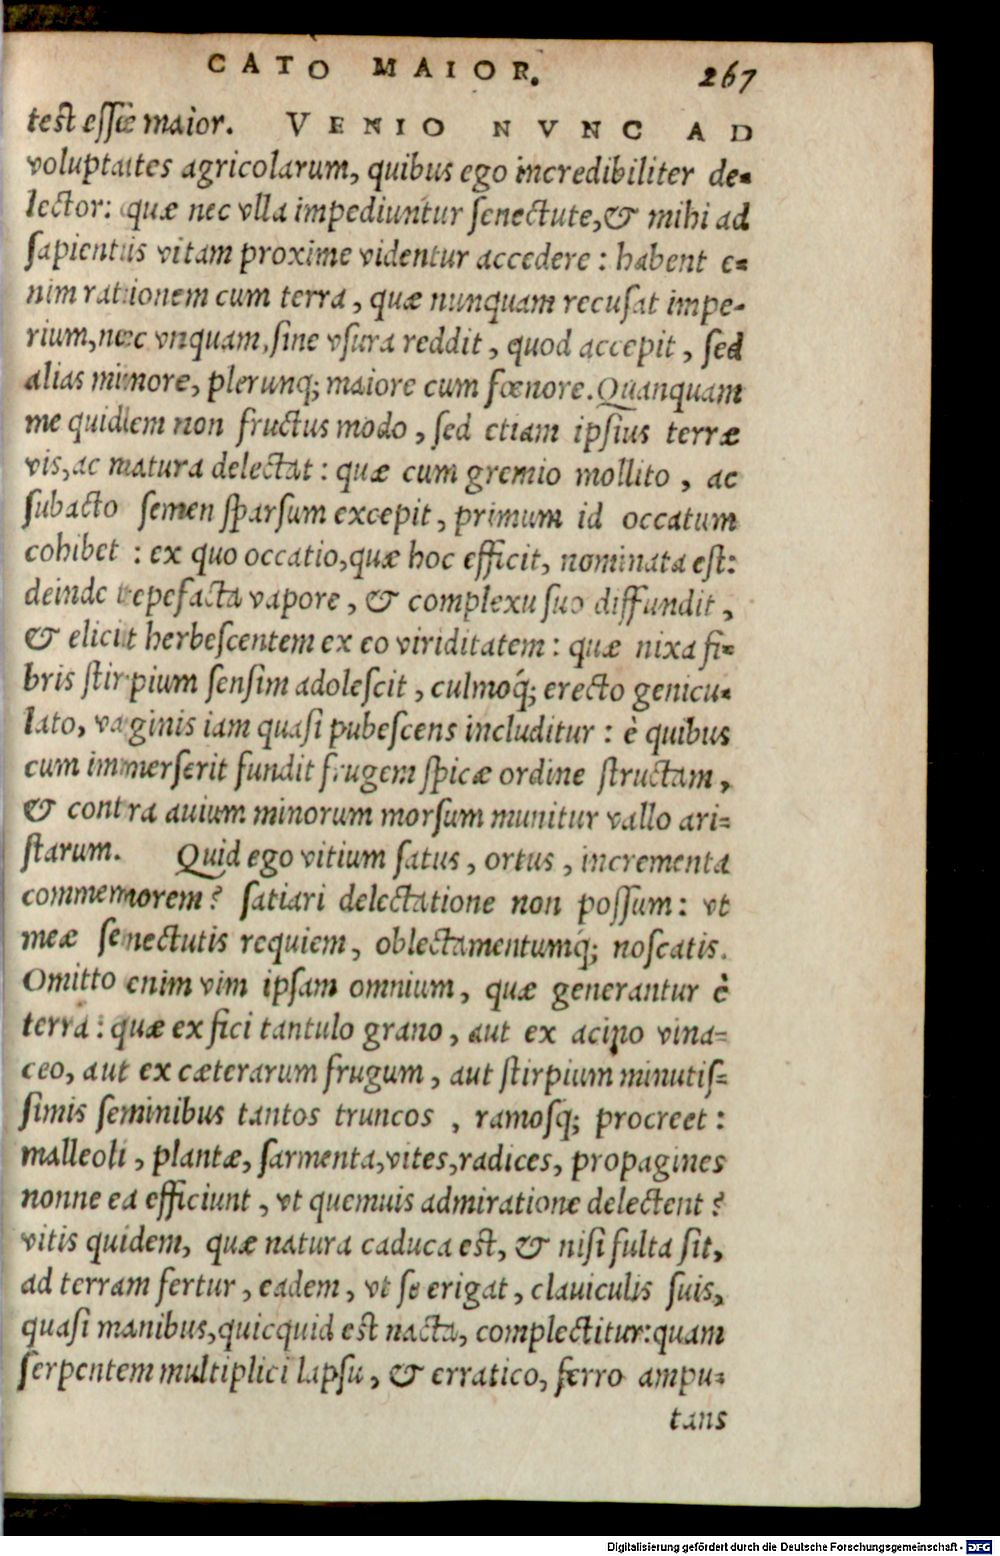 CATO MAIOR. 267
test esse maior. VENIO NVNC AD
voluptates agricolarum, quibus ego incredibiliter de-
lector: quæ nec vlla impediuntur senectute, & mihi ad
sapientis vitam proxime videntur accedere : habent e-
nim rationem cum terra, quæ nunquam recusat impe-
rium, nec vnquam, sine vsura reddit, quod accepit, sed
alias minore, plerunq; maiore cum fœnore. Quanquam
me quidem non fructus modo, sed etiam ipsius terræ
vis, ac natura delectat : quæ cum gremio mollito, ac
subacto semen sparsum excepit, primum id occatum
cohibet : ex quo occatio, quæ hoc efficit, nominata est:
deinde tepefacta vapore, & complexu suo diffundit,
& elicit herbescentem ex eo viriditatem : quæ nixa fi-
bris stirpium sensim adolescit, culmoq́; erecto genicu-
lato, vaginis iam quasi pubescens includitur : è quibus
cum immerserit fundit frugem spicæ ordine structam,
& contra auium minorum morsum munitur vallo ari-
starum. Quid ego vitium satus, ortus, incrementa
commemorem? satiari delectatione non possum: vt
meæ senectutis requiem, oblectamentumq́; noscatis.
Omitto enim vim ipsam omnium, quæ generantur è
terra : quæ ex fici tantulo grano, aut ex acino vina-
ceo, aut ex cæterarum frugum, aut stirpium minutis-
simis seminibus tantos truncos, ramosq; procreet :
malleoli, plantæ, sarmenta, vites, radices, propagines
nonne ea efficiunt, vt quemuis admiratione delectent?
vitis quidem, quæ natura caduca est, & nisi fulta sit,
ad terram fertur, eadem, vt se erigat, clauiculis suis,
quasi manibus, quicquid est nacta, complectitur: quam
serpentem multiplici lapsu, & erratico, ferro ampu-
tans
Digitalisierung gefördert durch die Deutsche Forschungsgemeinschaft - DFG